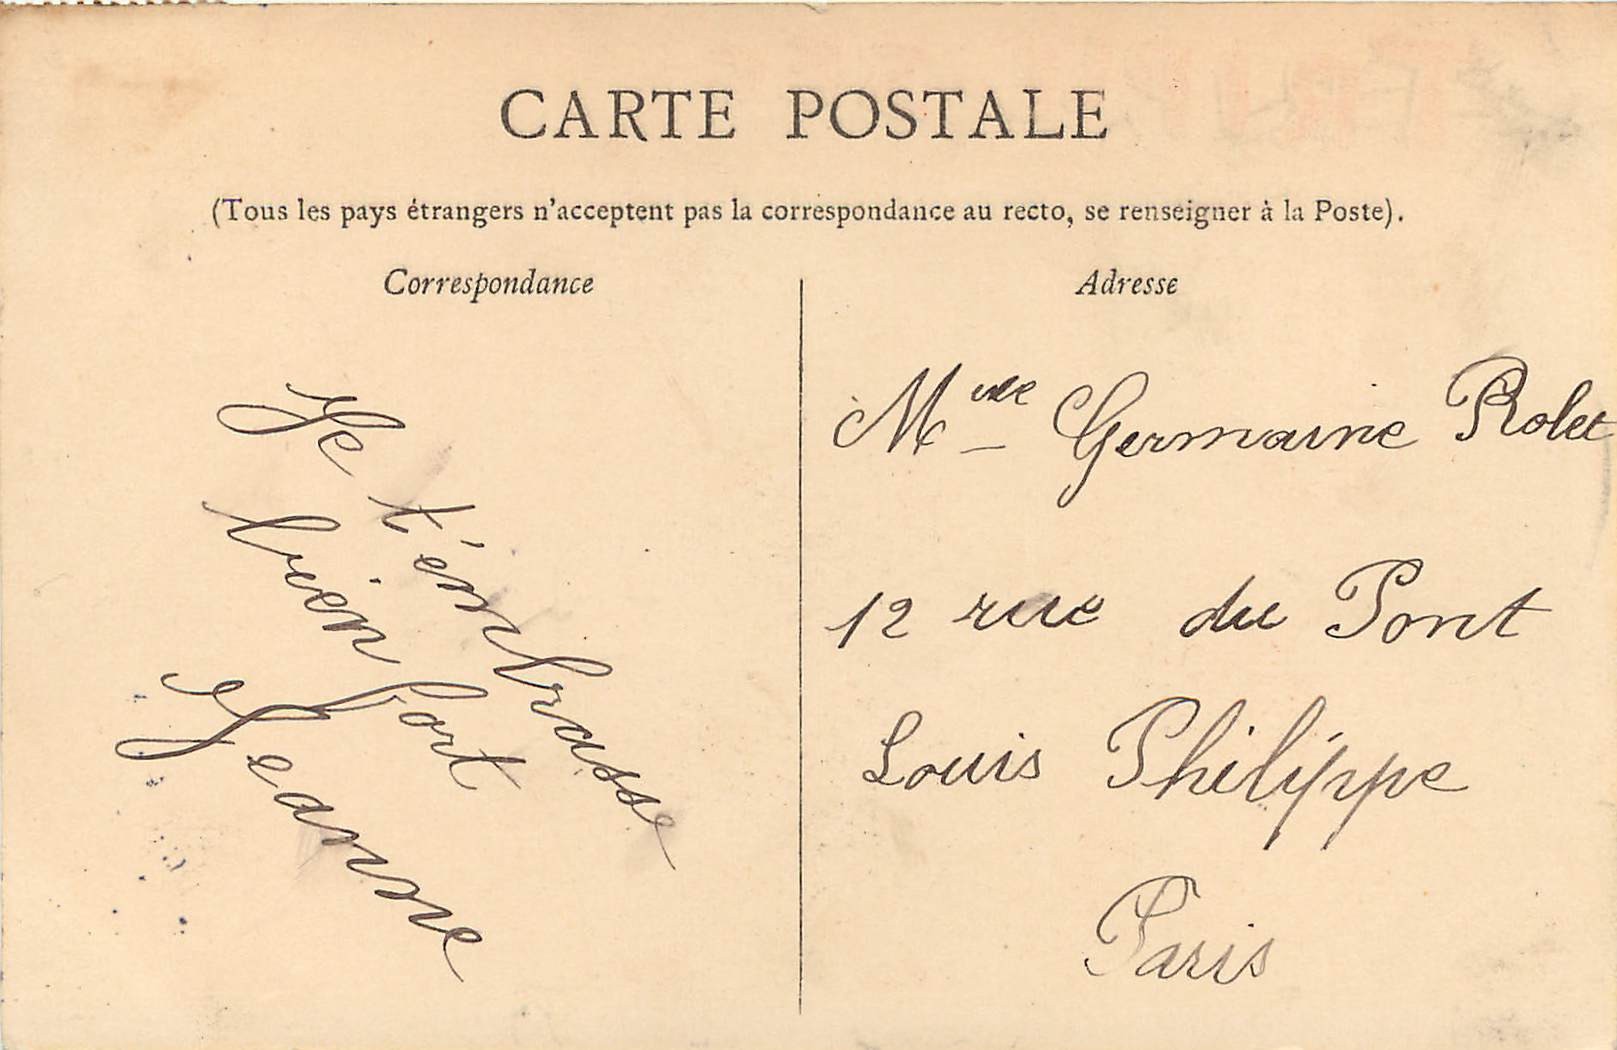 CARTE POSTALE
(Tous les pays étrangers n'acceptent pas la correspondance au recto, se renseigner à la Poste).
Correspondance
Je t'embrasse
bien fort
Jeanne
Adresse
Melle Germaine Rolet
12 rue du Pont
Louis Philippe
Paris